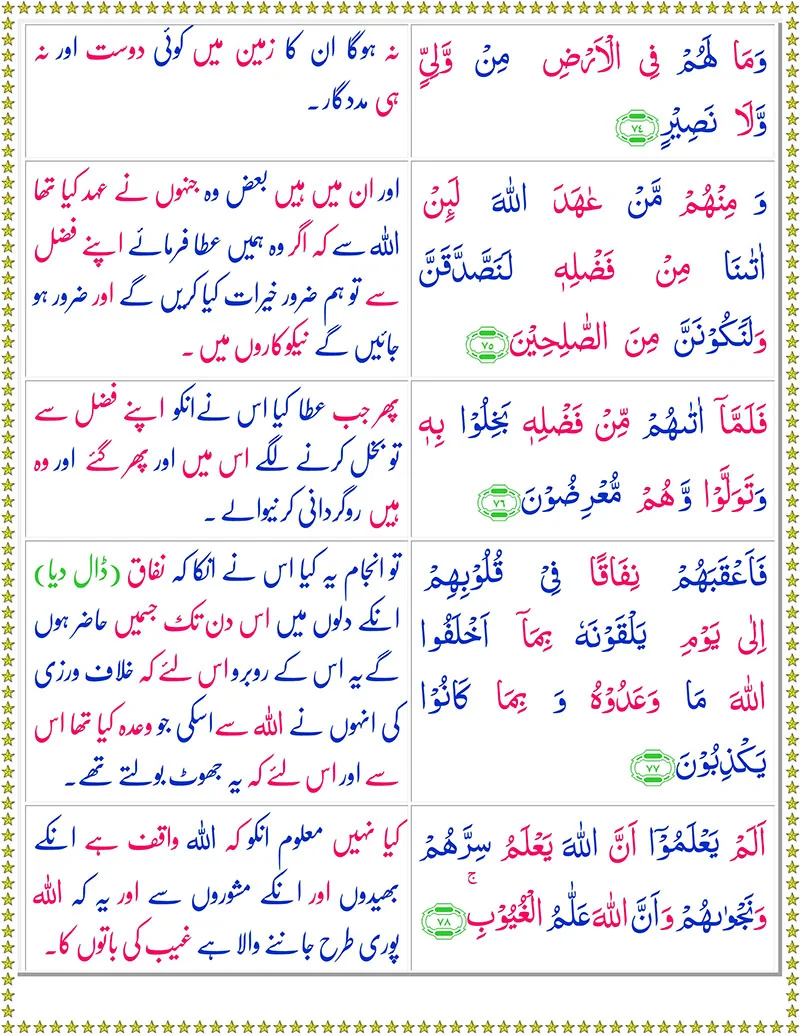 وَمَا لَهُمْ فِي الْاَرْضِ مِنْ وَّلِيٍّ
وَّلَا نَصِيْرٍ ﴿٧٤﴾
نہ ہوگا ان کا زمین میں کوئی دوست اور نہ
ہی مددگار۔
وَ مِنْهُمْ مَّنْ عٰهَدَ اللّٰهَ لَئِنْ
اٰتٰىنَا مِنْ فَضْلِهٖ لَنَصَّدَّقَنَّ
وَلَنَكُوْنَنَّ مِنَ الصّٰلِحِيْنَ ﴿٧٥﴾
اور ان میں ہیں بعض وہ جنہوں نے عہد کیا تھا
اللہ سے کہ اگر وہ ہمیں عطا فرمائے اپنے فضل
سے تو ہم ضرور خیرات کیا کریں گے اور ضرور ہو
جائیں گے نیکوکاروں میں ۔
فَلَمَّآ اٰتٰىهُمْ مِّنْ فَضْلِهٖ بَخِلُوْا بِهٖ
وَتَوَلَّوْا وَّهُمْ مُّعْرِضُوْنَ ﴿٧٦﴾
پھر جب عطا کیا اس نے انکو اپنے فضل سے
تو بخل کرنے لگے اس میں اور پھر گئے اور وہ
ہیں روگردانی کرنیوالے ۔
فَاَعْقَبَهُمْ نِفَاقًا فِيْ قُلُوْبِهِمْ
اِلٰى يَوْمِ يَلْقَوْنَهٗ بِمَآ اَخْلَفُوا
اللّٰهَ مَا وَعَدُوْهُ وَ بِمَا كَانُوْا
يَكْذِبُوْنَ ﴿٧٧﴾
تو انجام یہ کیا اس نے انکا کہ نفاق (ڈال دیا)
انکے دلوں میں اس دن تک جسمیں حاضر ہوں
گے یہ اس کے روبرو اس لئے کہ خلاف ورزی
کی انہوں نے اللہ سے اسکی جو وعدہ کیا تھا اس
سے اور اس لئے کہ یہ جھوٹ بولتے تھے۔
اَلَمْ يَعْلَمُوْٓا اَنَّ اللّٰهَ يَعْلَمُ سِرَّهُمْ
وَنَجْوٰىهُمْ وَاَنَّ اللّٰهَ عَلَّامُ الْغُيُوْبِ ۚ ﴿٧٨﴾
کیا نہیں معلوم انکو کہ اللہ واقف ہے انکے
بھیدوں اور انکے مشوروں سے اور یہ کہ اللہ
پوری طرح جاننے والا ہے غیب کی باتوں کا۔